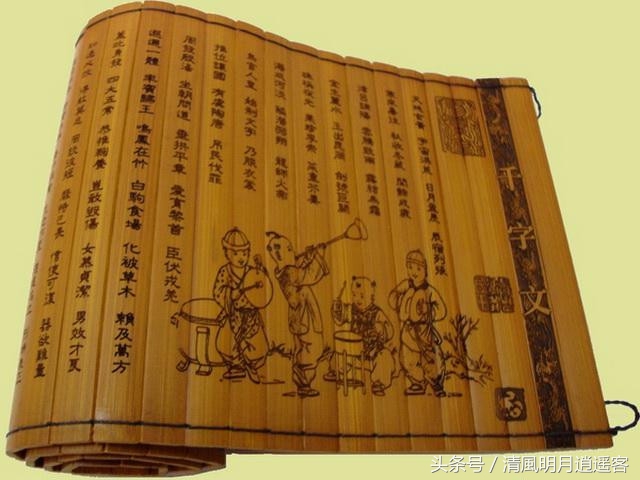 千字文
天地玄黃 宇宙洪荒 日月盈昃 辰宿列張
寒來暑往 秋收冬藏 閏餘成歲
律呂調陽 雲騰致雨 露結為霜
金生麗水 玉出崑岡 劍號巨闕
珠稱夜光 果珍李柰 菜重芥薑
海鹹河淡 鱗潛羽翔 龍師火帝
鳥官人皇 始制文字 乃服衣裳
推位讓國 有虞陶唐 吊民伐罪
周發殷湯 坐朝問道 垂拱平章 愛育黎首 臣伏戎羌
遐邇一體 率賓歸王 鳴鳳在竹 白駒食場 化被草木 賴及萬方
蓋此身髮 四大五常 恭惟鞠養 豈敢毀傷 女慕貞潔 男效才良
知過必改 得能莫忘 罔談彼短 靡恃己長 信使可覆 器欲難量
头条号／清風明月逍遥客